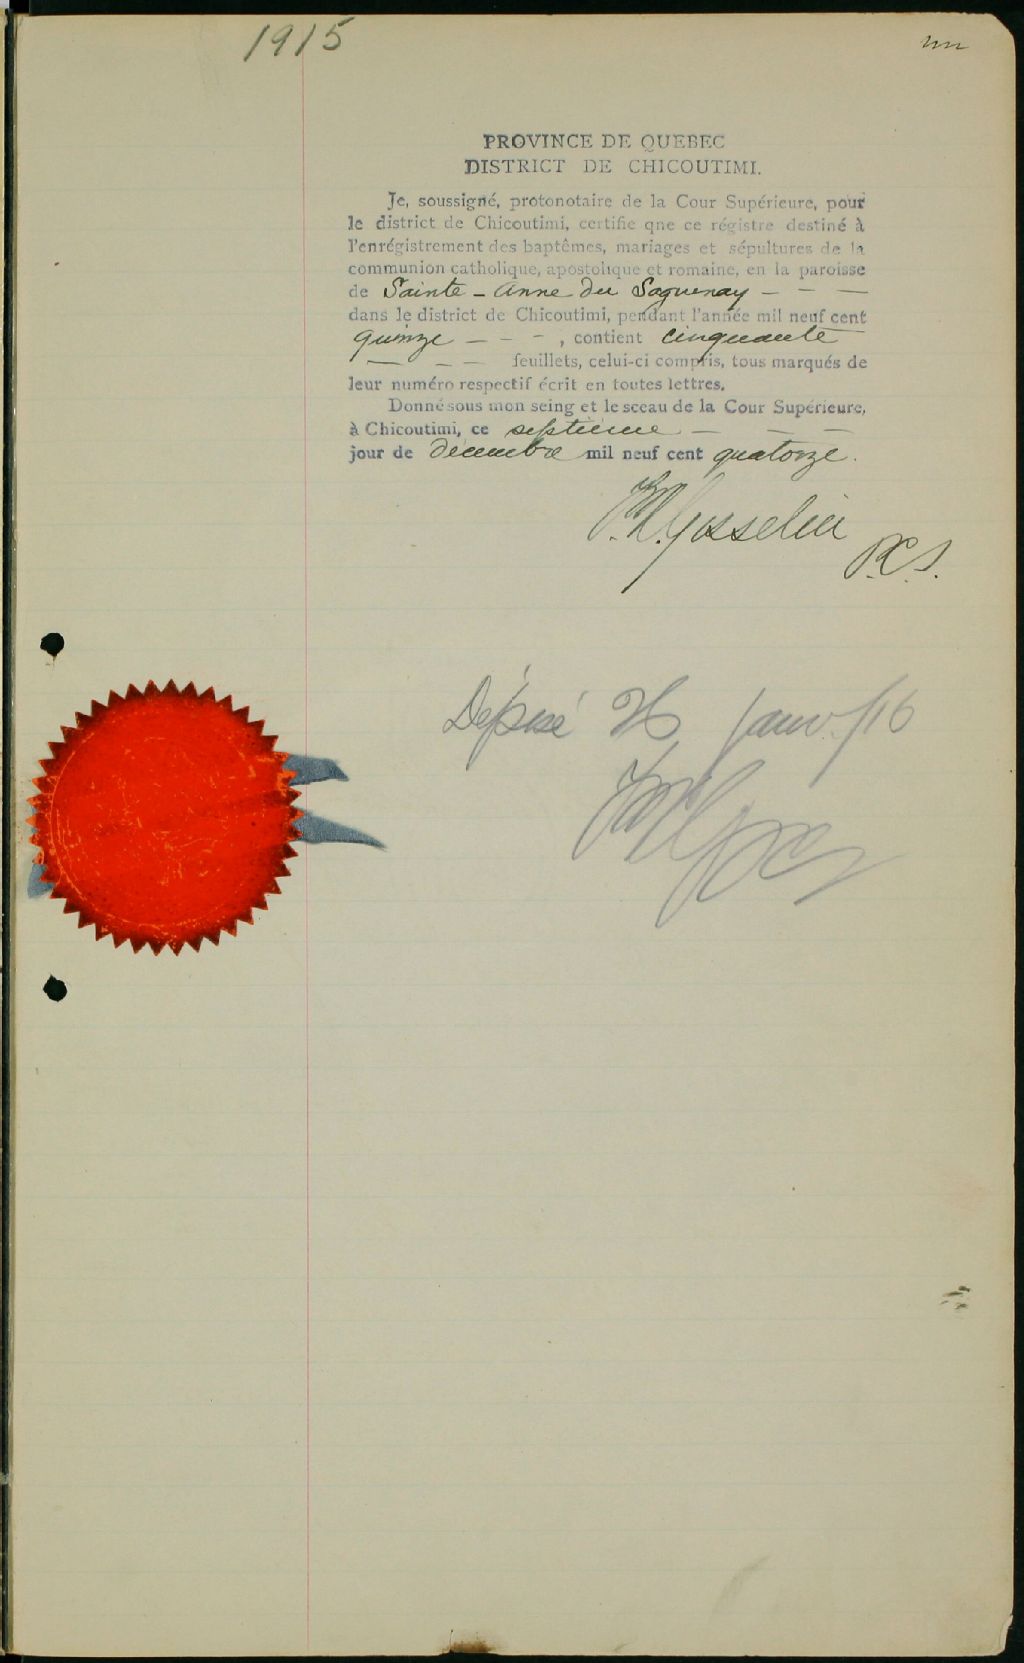 1915
un
PROVINCE DE QUEBEC
DISTRICT DE CHICOUTIMI.
Je, soussigné, protonotaire de la Cour Supérieure, pour
le district de Chicoutimi, certifie qne ce régistre destiné à
l'enrégistrement des baptêmes, mariages et sépultures de la
communion catholique, apostolique et romaine, en la paroisse
de Sainte-Anne du Saguenay — — —
dans le district de Chicoutimi, pendant l'année mil neuf cent
quinze — — — , contient cinquante
— — — feuillets, celui-ci compris, tous marqués de
leur numéro respectif écrit en toutes lettres.
Donné sous mon seing et le sceau de la Cour Supérieure,
à Chicoutimi, ce septième — — —
jour de décembre mil neuf cent quatorze.
Gosselin
P.C.S.
Déposé 26 janv. /16